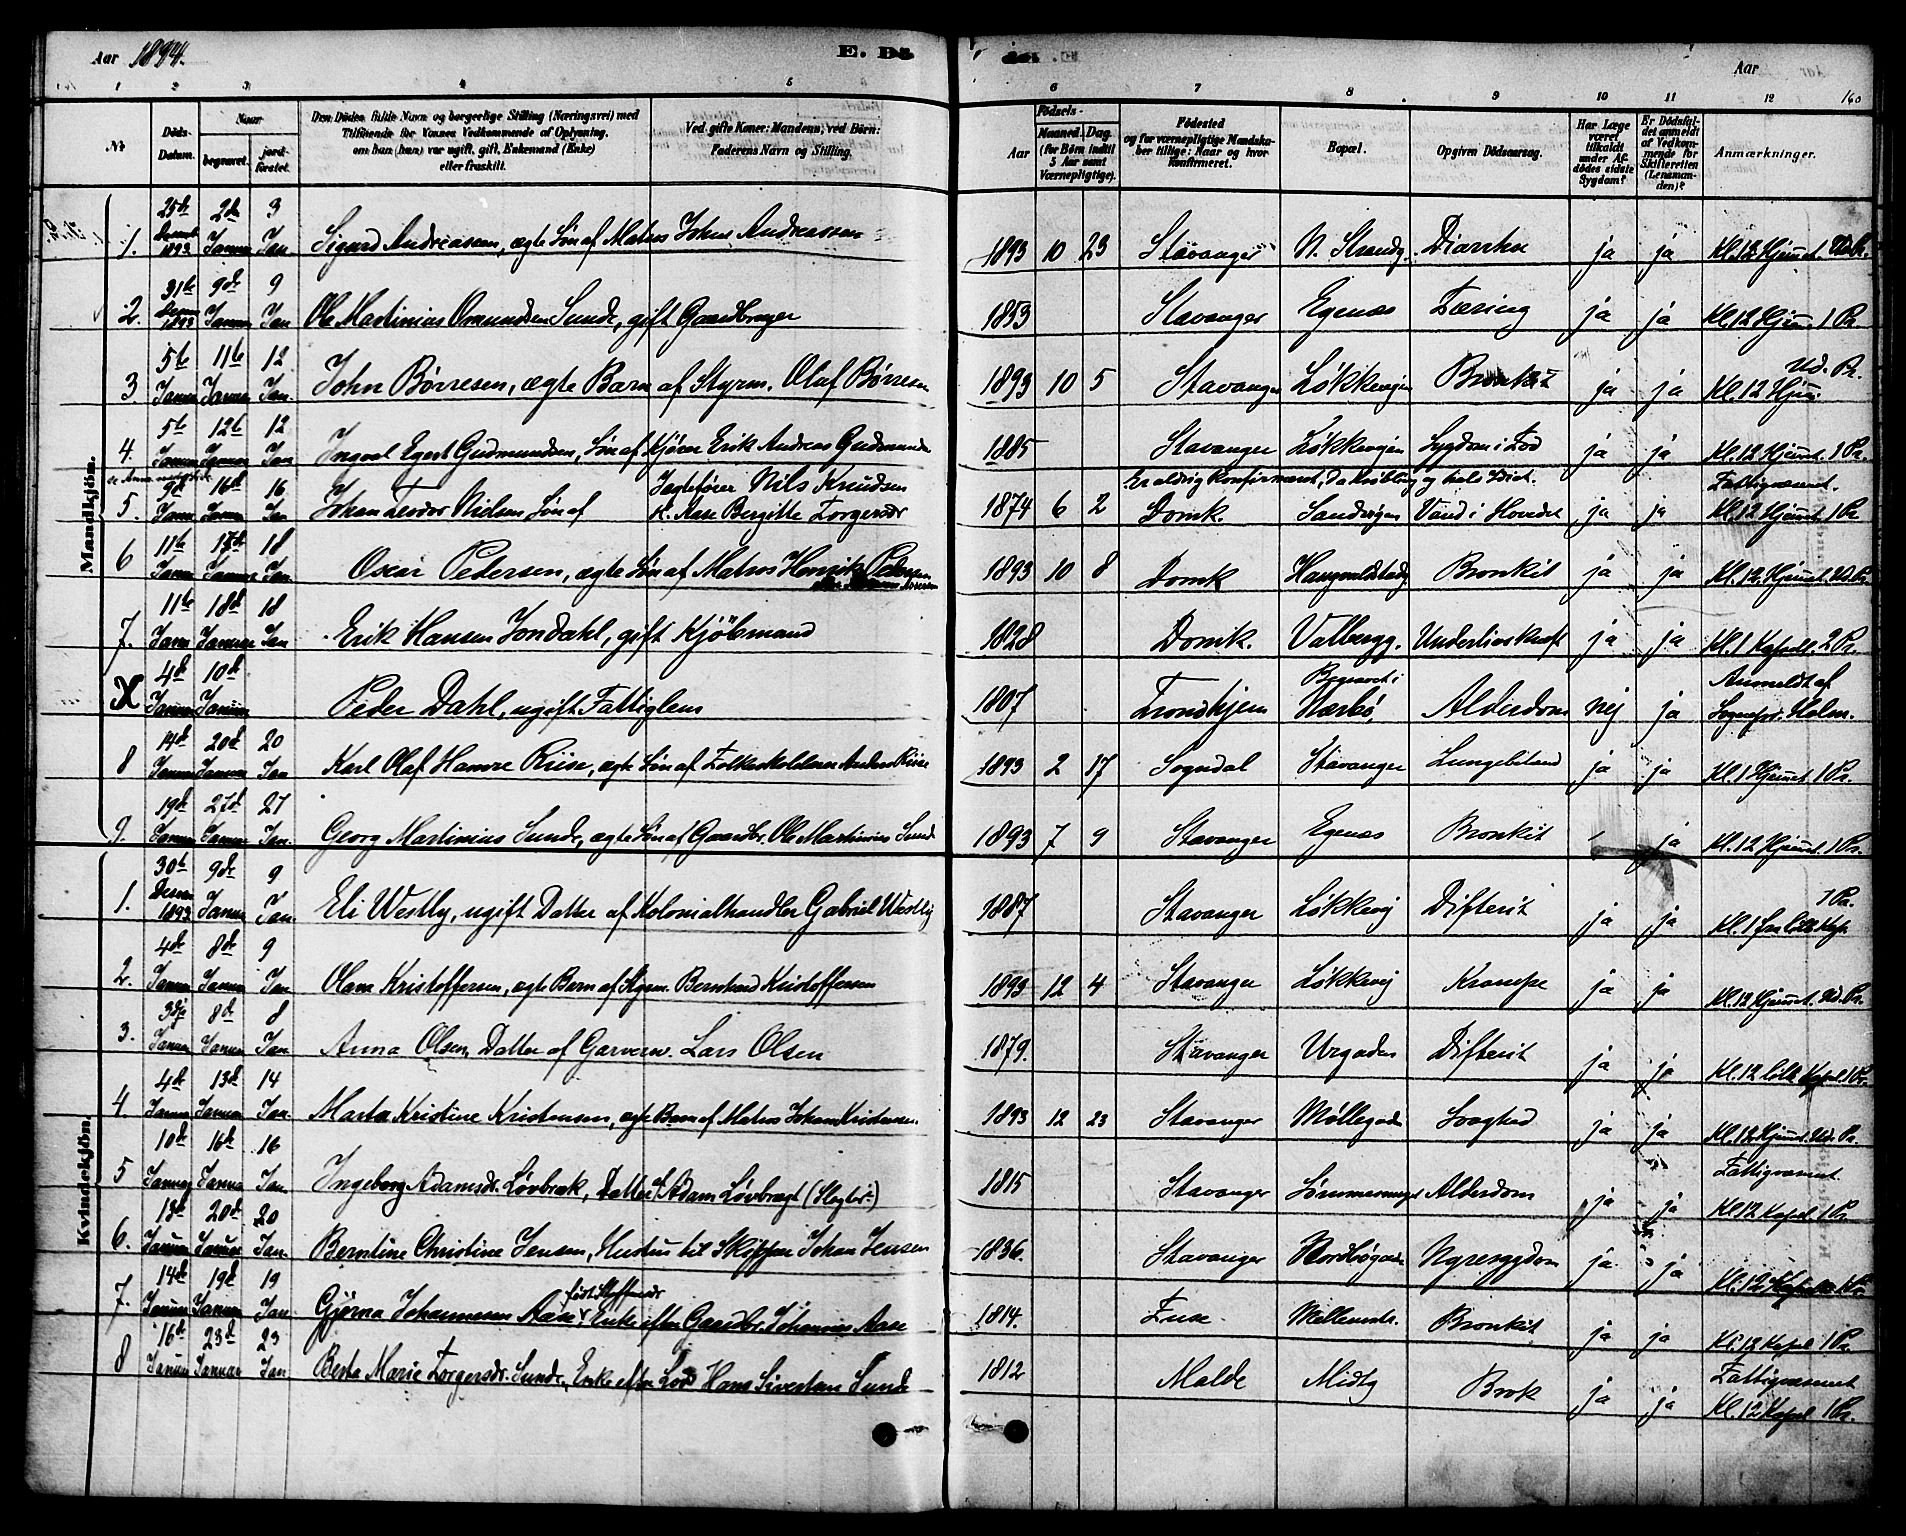 Aar 1894. E. Dö
Aar
1 2 3 4 5 6 7 8 9 10 11 12 160
No
Döds-Datum.
Naar
begravet.
jordfæstet.
Den Dödes fulde Navn og borgerlige Stilling (Næringsvei) med
Tilföiende for Voxnes Vedkommende af Oplysning,
om han (hun) var ugift, gift, Enkemand (Enke)
eller fraskilt.
Ved gifte Koner: Mandens, ved Börn:
Faderens Navn og Stilling.
Födsels-
Aar
Maaned. Dag.
(for Börn indtil 5 Aar samt Værnepligtige).
Födested
og for værnepligtige Mandskaber tillige: Naar og hvor konfirmeret.
Bopæl.
Opgiven Dödsaarsag.
Har Læge været tilkaldt under Afdödes sidste Sygdom?
Er Dödsfaldet anmeldt af Vedkommende for Skifteretten (Lensmanden)?
Anmærkninger.
Mandkjön.
1. 25de Decemb 1893 2d Januar 3 Jan Sigurd Andreassen, ægte Søn af Matros Johan Andreassen 1893 10 23 Stavanger N. Strandg. Diarrhee ja ja Kl. 12 Hjemmet. Ud. Pr.
2. 31te Decem 1893 9de Januar 9 Jan Ole Martinius Omundsen Sunde, gift Gaardbruger 1853 Stavanger Egenæs Tæring ja ja Kl. 12 Hjem. 1 Pr.
3. 5te Januar 11te Januar 12 Jan John Børresen, ægte Barn af Styrm. Olaf Børresen 1893 10 5 Stavanger Løkkevejen Bronkit ja ja Ud. Pr. Kl. 12 Hjem.
4. 5te Januar 12te Januar 12 Jan Ingval Egert Gudmundsen, Søn af Kjører Erik Andreas Gudmunds 1885 Stavanger Løkkevejen Sygdom i Fod ja ja Kl. 12 Hjemmet. 1 Pr.
5. 9de Januar 16de Januar 16 Jan Johan Teodor Nielsen Søn af Jagtfører Nils Knudsen H. Aase Bergitte Torgersdr 1874 6 2 Er aldrig konfirmeret, da Krøbling og hele Idiot. Domk. Sandvigen Vand i Hovdet ja ja Fattigvæsenet. Kl. 12 Hjemmet. 1 Pr
6 11te Januar 17de Januar 18 Jan Oscar Pedersen, ægte Søn af Matros Henrik 1893 10 8 Domk Haugvaldstadg Bronkit ja ja Kl. 12 Hjemmet. Ud. Pr.
7. 11te Januar 18de Januar 18 Jan Erik Hansen Jondahl, gift Kjøbmand 1828 Domk. Valbergg. Underlivskræft ja ja Kl. 1 Kapellet. 2 Pr.
X 4de Januar 10de Januar Peder Dahl, ugift Fattiglem 1807 Trondhjem Begravet i Nærbø Alderdom nej ja Anmeldt af Sognepr. Holm.
8 14de Januar 20de Januar 20 Jan Karl Olaf Hamre Riise, ægte Søn af Folkeskolelærer Anders Riise 1893 2 17 Sogndal Stavanger Lungebetænd ja ja Kl. 1 Hjemmet. 1 Pr.
9. 19de Januar 27de Januar 27 Jan. Georg Martinius Sunde, ægte Søn af Gaardbr. Ole Martinius Sunde 1893 7 9 Stavanger Egenæs Bronkit ja Kl. 12 Hjemmet. 1 Pr.
Kvindekjön.
1. 30te Decem 1893 9de Januar 9 Jan. Eli Westly, ugift Datter af Kolonialhandler Gabriel Westly 1887 Stavanger Løkkevej Difterit ja ja 1 Pr. Kl. 1 fra lille Kap.
2. 4de Januar 8de Januar 9 Jan Olava Kristoffersen, ægte Barn af Styrm. Bernhard Kristoffersen 1893 12 4 Stavanger Løkkevej Krampe ja ja Kl. 12 Hjemmet. Ud. Pr.
3. 3dje Januar 8de Januar 8 Jan. Anna Olsen, Datter af Garversv. Lars Olsen 1879. Stavanger Urgaden Difterit ja ja Kl. 12 lille Kapel 1 Pr.
4. 4de Januar 13de Januar 14 Jan. Marta Kristine Kristensen, ægte Barn af Matros Johan Kristensen 1893 12 23 Stavanger Møllegade Svaghed ja ja Kl. 12 Hjemmet. Ud. Pr.
5 10de Januar 16de Januar 16 Jan. Ingeborg Adamsdr. Løvbræk, Datter af Adam Løvbrægt (Slagter) 1815 Stavanger Alderdom ja ja Fattigvæsenet Kl. 12 Kapel. 1 Pr
6. 13de Januar 20de Januar 20 Jan. Berntine Christine Jensen, Hustru til Skipper Johan Jensen 1836. Stavanger Nordbøgade Nyresygdom ja ja Kl. 12
7. 14de Januar 19de Januar 19 Jan. Gjørna Johannesen Aase, født Steffensdr Enke efter Gaardbr. Johannes Aase 1814. Fuse. Mellemstr. Bronkit ja ja Kl. 12 Kapel 1 Pr.
8 16de Januar 23de Januar 23 Jan Berta Marie Torgersdr. Sunde, Enke efter Lods Hans Sivertsen Sunde 1812 Malde Midtg Brok ja ja Fattigvæsenet Kl. 12 Kapel 1 Pr.